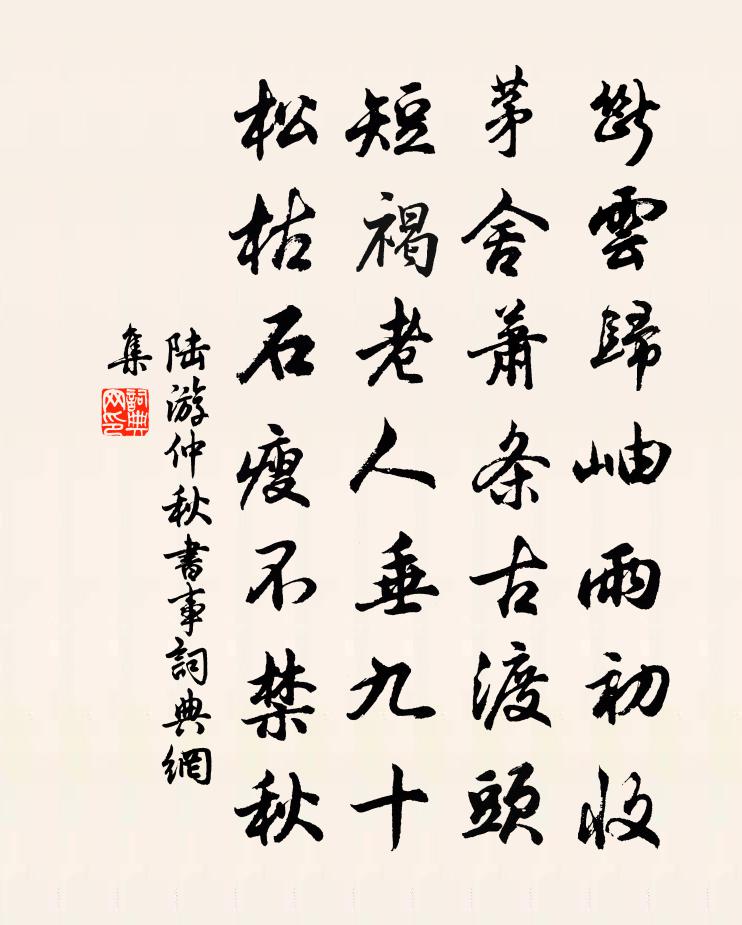 断雲歸岫雨初收
茅舍蕭条古渡頭
短褐老人垂九十
松枯石瘦不禁秋
陆游仲秋書事詞典網
集
詞典
网印